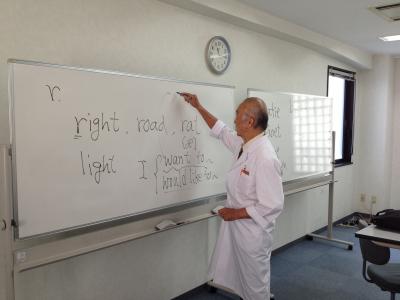 r.
right, road, rat
light
I { want to ~
would like to ~